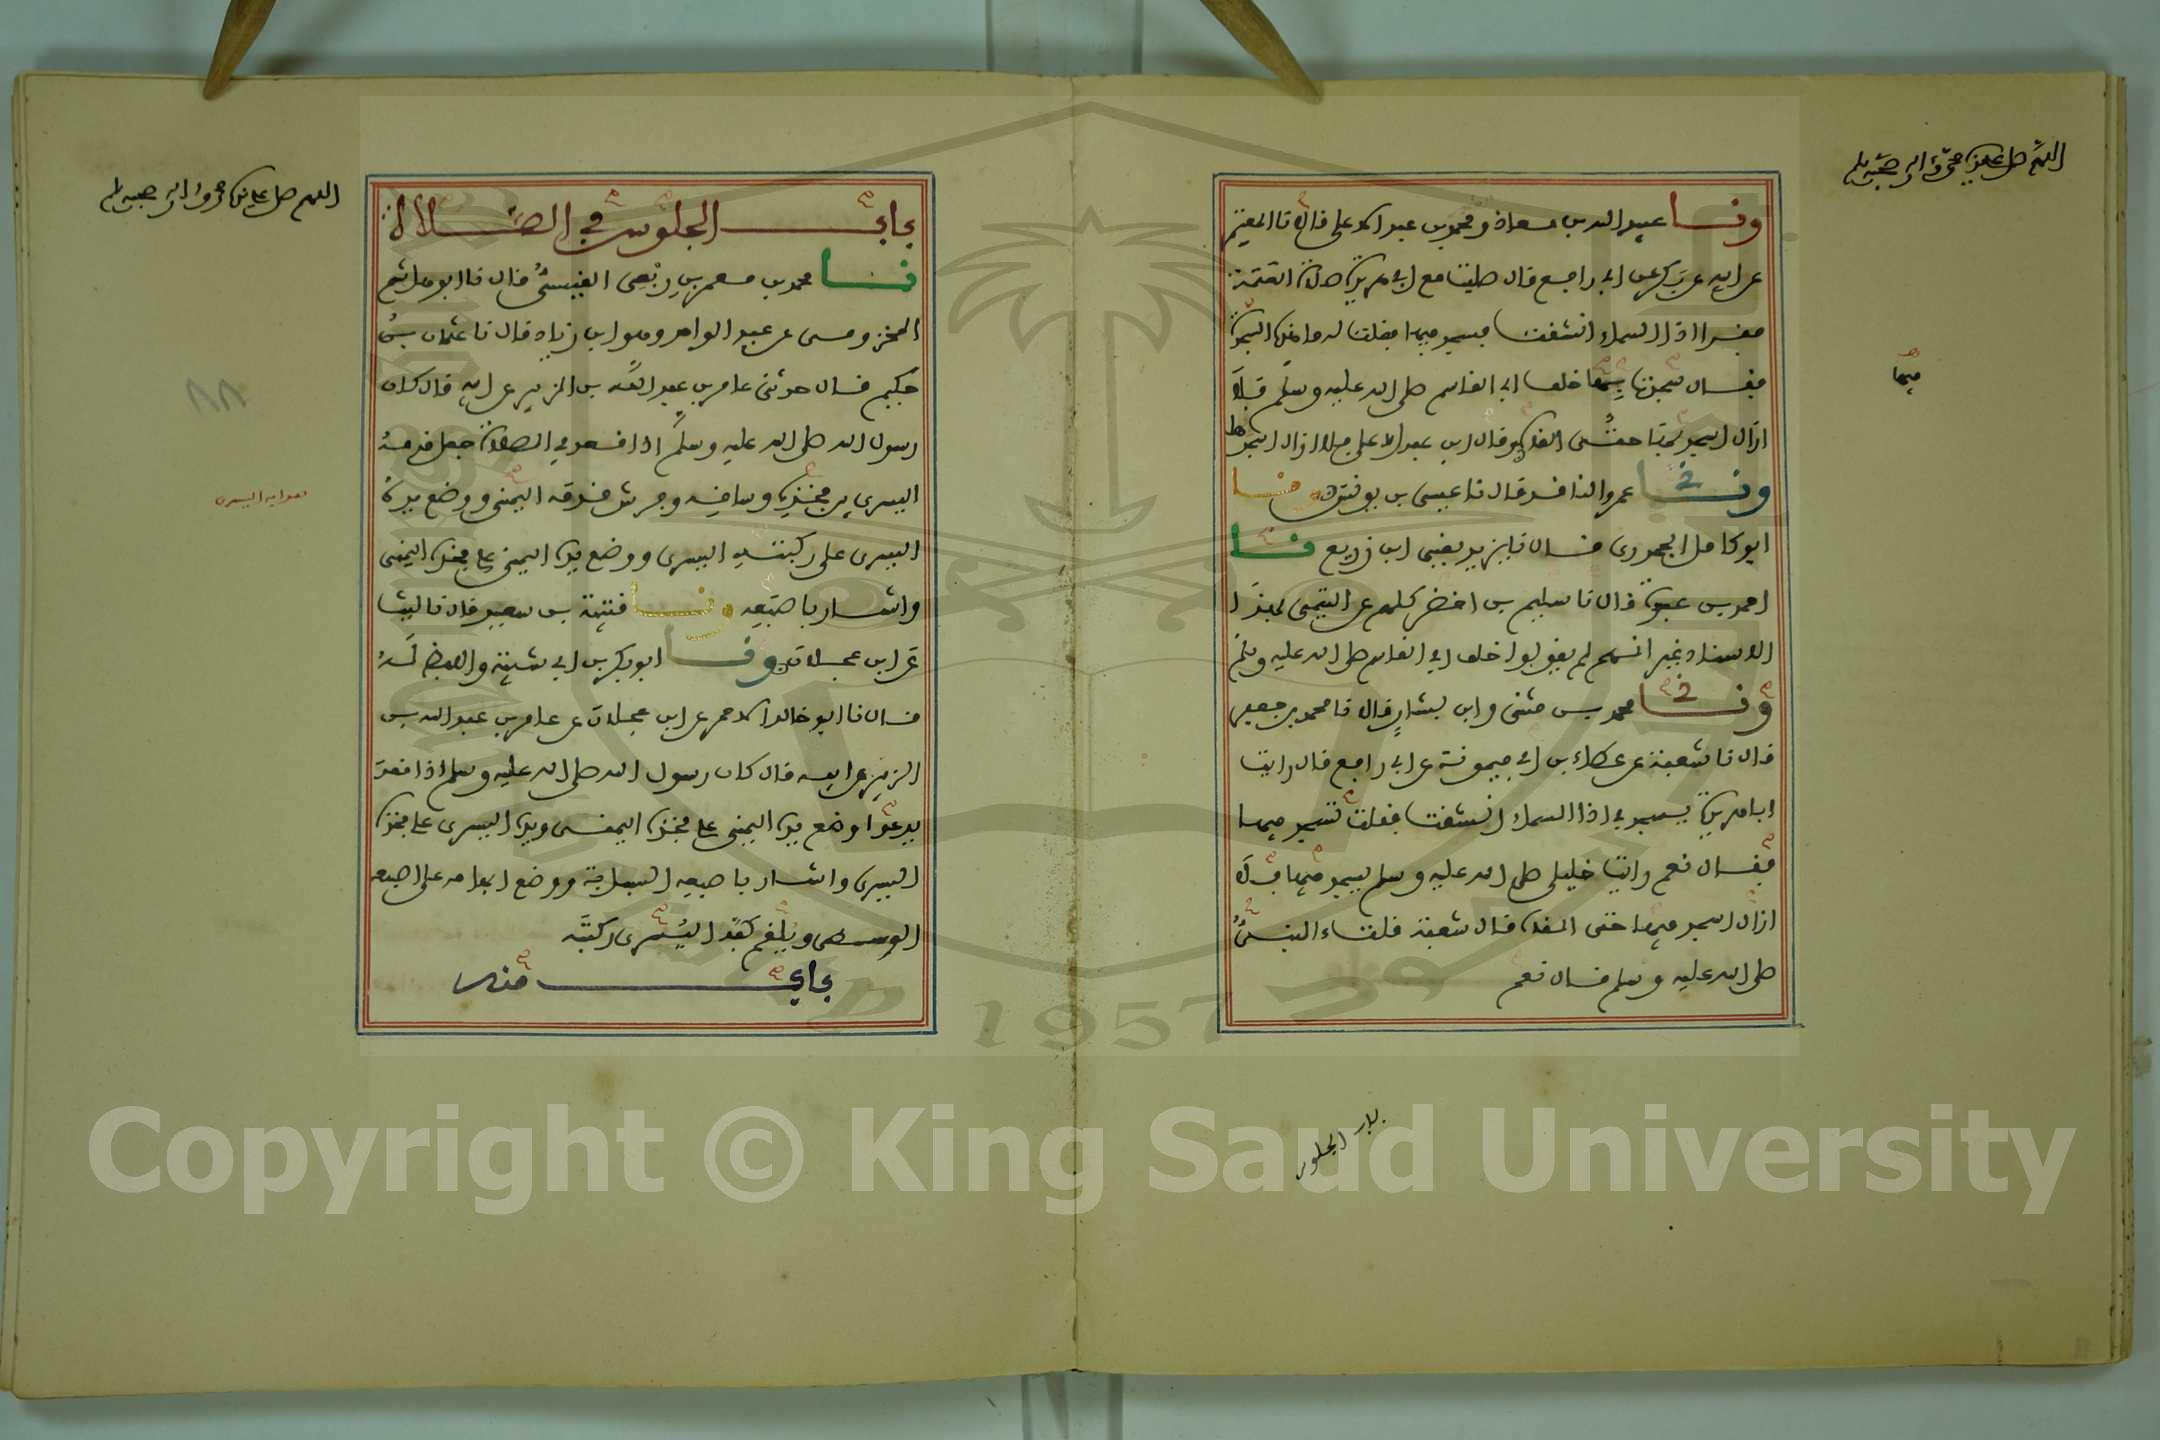 اللهم صل على سيدنا محمد وآله وصحبه وسلم
ونا عبيد الله بن معاذ ومحمد بن عبد الاعلى قالا نا المعتمر
عن ابيه عن بكر عن ابي رافع قال صليت مع ابي هريرة صلاة العتمة
فقرا اذا السماء انشقت فسجد فيها فقلت له ما هذه السجدة
فقال سجدتها بها خلف ابي القاسم صلى الله عليه وسلم فلا
ازال اسجد بها حتى القاه وقال ابن عبد الاعلى فلا ازال اسجدها
ونا عمرو الناقد قال نا عيسى بن يونس ونا
ابو كامل الجحدري قال نا يزيد يعني ابن زريع نا
احمد بن عبدة قال نا سليم بن اخضر كلهم عن التيمي بهذا
الاسناد غير انهم لم يقولوا خلف ابي القاسم صلى الله عليه وسلم
ونا محمد بن مثنى وابن بشار قالا نا محمد بن جعفر
قال نا شعبة عن عطاء بن ابي ميمونة عن ابي رافع قال رايت
ابا هريرة يسجد في اذا السماء انشقت فقلت تسجد فيها
فقال نعم رايت خليلي صلى الله عليه وسلم يسجد فيها فلا
ازال اسجد فيها حتى القاه قال شعبة قلت النبي
صلى الله عليه وسلم قال نعم
فيها
باب الجلوس
اللهم صل على سيدنا محمد وآله وصحبه وسلم
باب الجلوس في الصلاة
نا محمد بن معمر بن ربعي القيسي قال نا ابو هاشم
المخزومي عن عبد الواحد وهو ابن زياد قال نا عثمان بن
حكيم قال حدثني عامر بن عبد الله بن الزبير عن ابيه قال كان
رسول الله صلى الله عليه وسلم اذا قعد في الصلاة جعل قدمه
اليسرى بين فخذه وساقه وفرش قدمه اليمنى ووضع يده
اليسرى على ركبته اليسرى ووضع يده اليمنى على فخذه اليمنى
واشار باصبعه ونا قتيبة بن سعيد قال نا ليث
عن ابن عجلان ونا ابو بكر بن ابي شيبة واللفظ له
قال نا ابو خالد الاحمر عن ابن عجلان عن عامر بن عبد الله بن
الزبير عن ابيه قال كان رسول الله صلى الله عليه وسلم اذا قعد
يدعو وضع يده اليمنى على فخذه اليمنى ويده اليسرى على فخذه
اليسرى واشار باصبعه السبابة ووضع ابهامه على اصبعه
الوسطى ويلقم كفه اليسرى ركبته
باب منه
٨٨
1957
Copyright © King Saud University